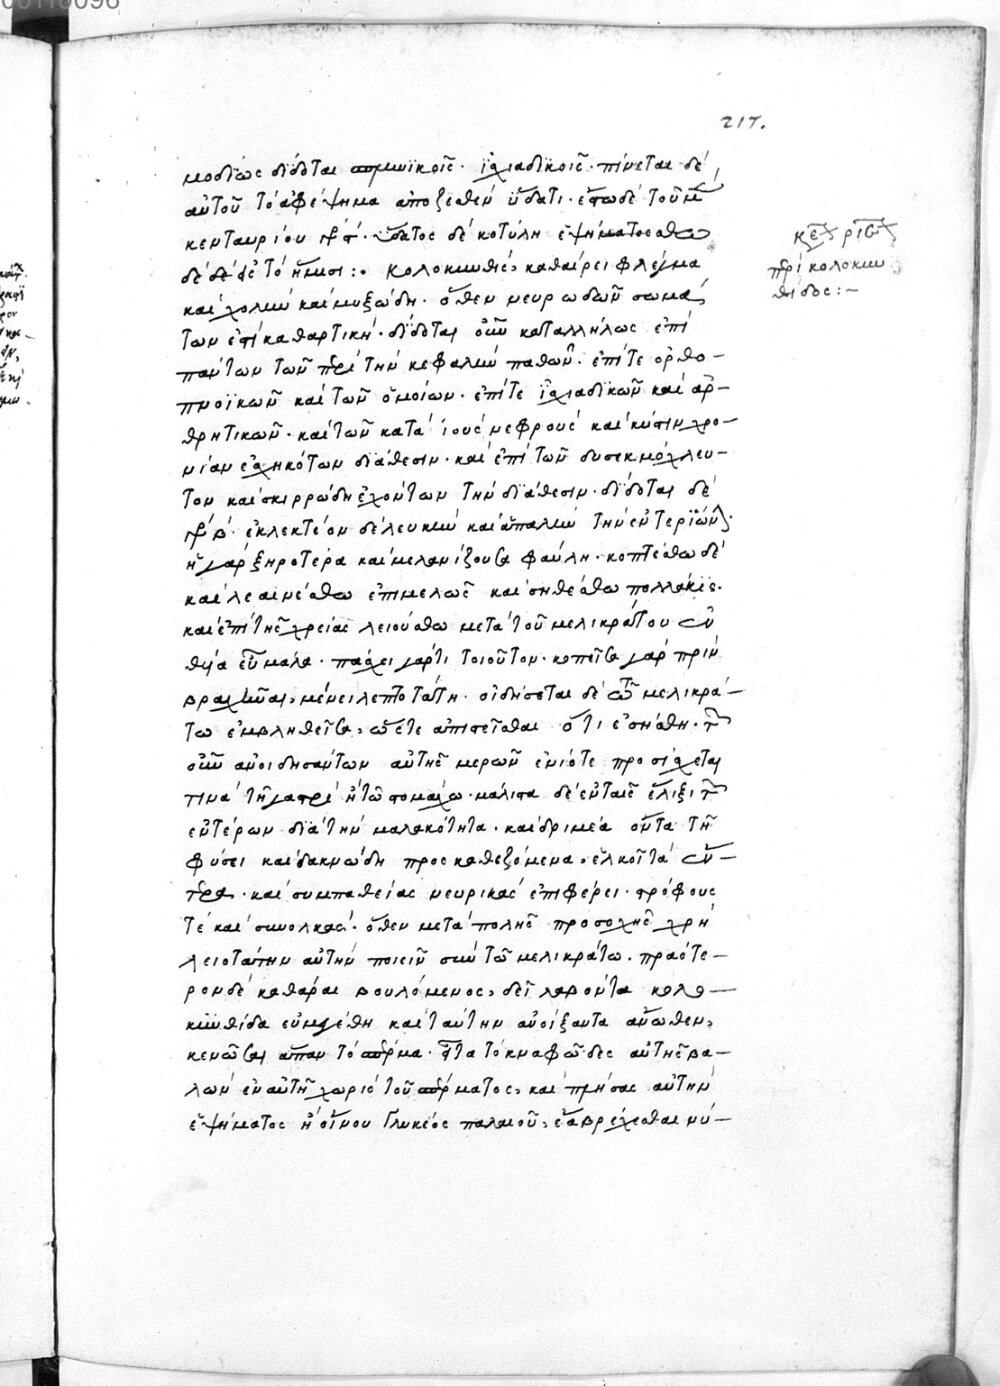 217.
δίδοται ἰσχιαδικοῖς · πίνεται δὲ
αὐτοῦ τὸ ἀφέψημα ἀποζεσθὲν ὕδατι · ἔστω δὲ τοῦ μ
κενταυρίου ὕδατος δὲ κοτύλη ἑψήματος
τὸ ἥμισυ :· κολοκυνθὶς, καθαίρει φλέγμα
περὶ κολοκυν
θίδος :-
καὶ χολὴν καὶ μυξώδη · ὅθεν νευρωδῶν σωμά
των ἐστὶ καθαρτική · δίδοται οὖν καταλλήλως ἐπὶ
πάντων τῶν περὶ τὴν κεφαλὴν παθῶν · ἐπί τε ὀρθο-
πνοϊκῶν καὶ τῶν ὁμοίων · ἐπί τε ἰσχιαδικῶν καὶ ἀρ-
θρητικῶν · καὶ τῶν κατὰ τοὺς νεφροὺς καὶ κύστιν χρο-
νίαν ἐσχηκότων διάθεσιν · καὶ ἐπὶ τῶν δυσεκμόχλευ-
τον καὶ σκιρρώδη ἐχόντων τὴν διάθεσιν · δίδοται δὲ
ἐκλεκτέον δὲ λευκὴν καὶ ἁπαλὴν τὴν ἐντεριώνην ·
ἡ γὰρ ξηροτέρα καὶ μελανίζουσα φαύλη · κοπτέσθω δὲ
καὶ λεαινέσθω ἐπιμελῶς καὶ σηθέσθω πολλάκις ·
καὶ ἐπὶ τῆς χρείας λειούσθω μετὰ τοῦ μελικράτου ἐν
θυία εὖ μάλα · πάσχει γάρ τι τοιοῦτον · κοπεῖσα γὰρ πρὶν
βραχῆναι, μένει λεπτοτάτη · οἰδήσεται δὲ τῶ μελικρά-
τω ἐμβληθεῖσα, ὥστε ἀπιστεῖσθαι ὅτι ἐσήσθη · τῶν
οὖν ἀνοιδησάντων αὐτῆς μερῶν ἐνίοτε προσίσχεται
τινὰ τῆ γαστρὶ ἢ τῶ στομάχω · μάλιστα δὲ ἐν ταῖς ἕλιξι τῶν
ἐντέρων διὰ τὴν μαλακότητα · καὶ δριμέα ὄντα τῆ
φύσει καὶ δακνώδη προσκαθεζόμενα, ἑλκοῖ τὰ ἔν-
τερα · καὶ συμπαθείας νευρικὰς ἐπιφέρει · στρόφους
τὲ καὶ συνολκὰς · ὅθεν μετὰ πολλῆς προσοχῆς χρὴ
λειοτάτην αὐτὴν ποιεῖν σὺν τῶ μελικράτω · πραότε-
ρον δὲ καθᾶραι βουλόμενος, δεῖ λαβόντα κολο-
κυνθίδα εὐμεγέθη καὶ ταύτην ἀνοίξαντα ἄνωθεν,
κενῶσαι ἅπαν τὸ σπέρμα · εἶτα τὸ κναφῶδες αὐτῆς βα-
λὼν ἐν αὐτῆ χωρὶς τοῦ σπέρματος, καὶ πλήσας αὐτὴν
ἑψήματος ἢ οἴνου γλυκέος παλαιοῦ, ἔα βρέχεσθαι νύ-